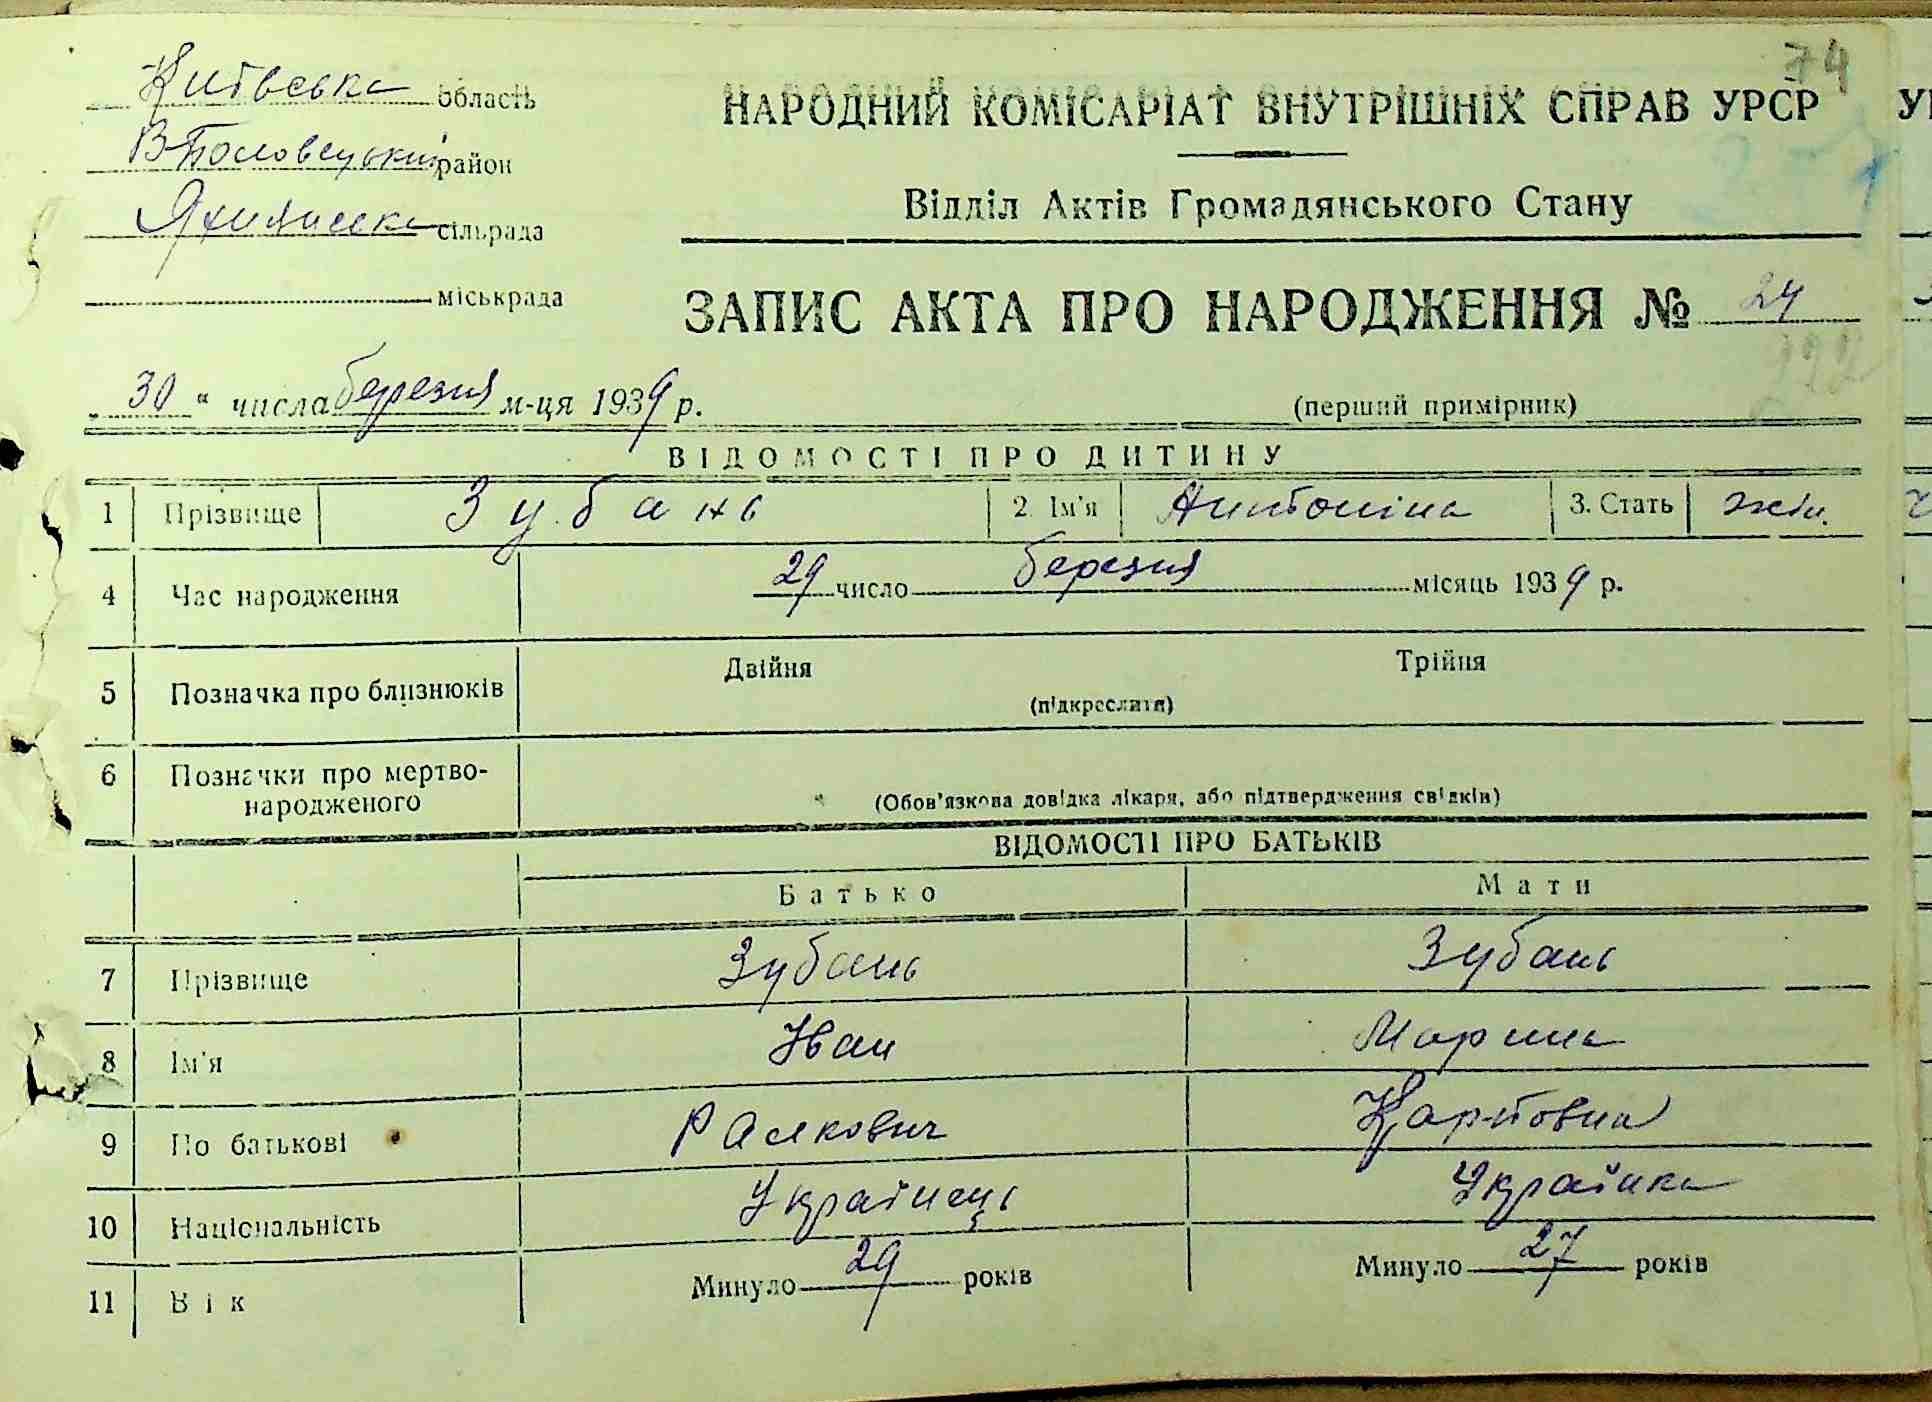 74
Київська область
НАРОДНИЙ КОМІСАРІАТ ВНУТРІШНІХ СПРАВ УРСР
В-Половецький район
Відділ Актів Громадянського Стану
сільрада
міськрада
ЗАПИС АКТА ПРО НАРОДЖЕННЯ № 24
„30“ числа березня м-ця 1939 р.
(перший примірник)
ВІДОМОСТІ ПРО ДИТИНУ
1 Прізвище Зубань 2. Ім'я Антоніна 3. Стать жін.
4 Час народження 29 число березня місяць 1939 р.
5 Позначка про близнюків Двійня Трійня
(підкреслити)
6 Позначки про мертво-
народженого
(Обов'язкова довідка лікаря, або підтвердження свідків)
ВІДОМОСТІ ПРО БАТЬКІВ
Батько Мати
7 Прізвище Зубань Зубань
8 Ім'я Іван Марина
9 По батькові Карповна
10 Національність Українець Українка
11 Вік Минуло 29 років Минуло 27 років